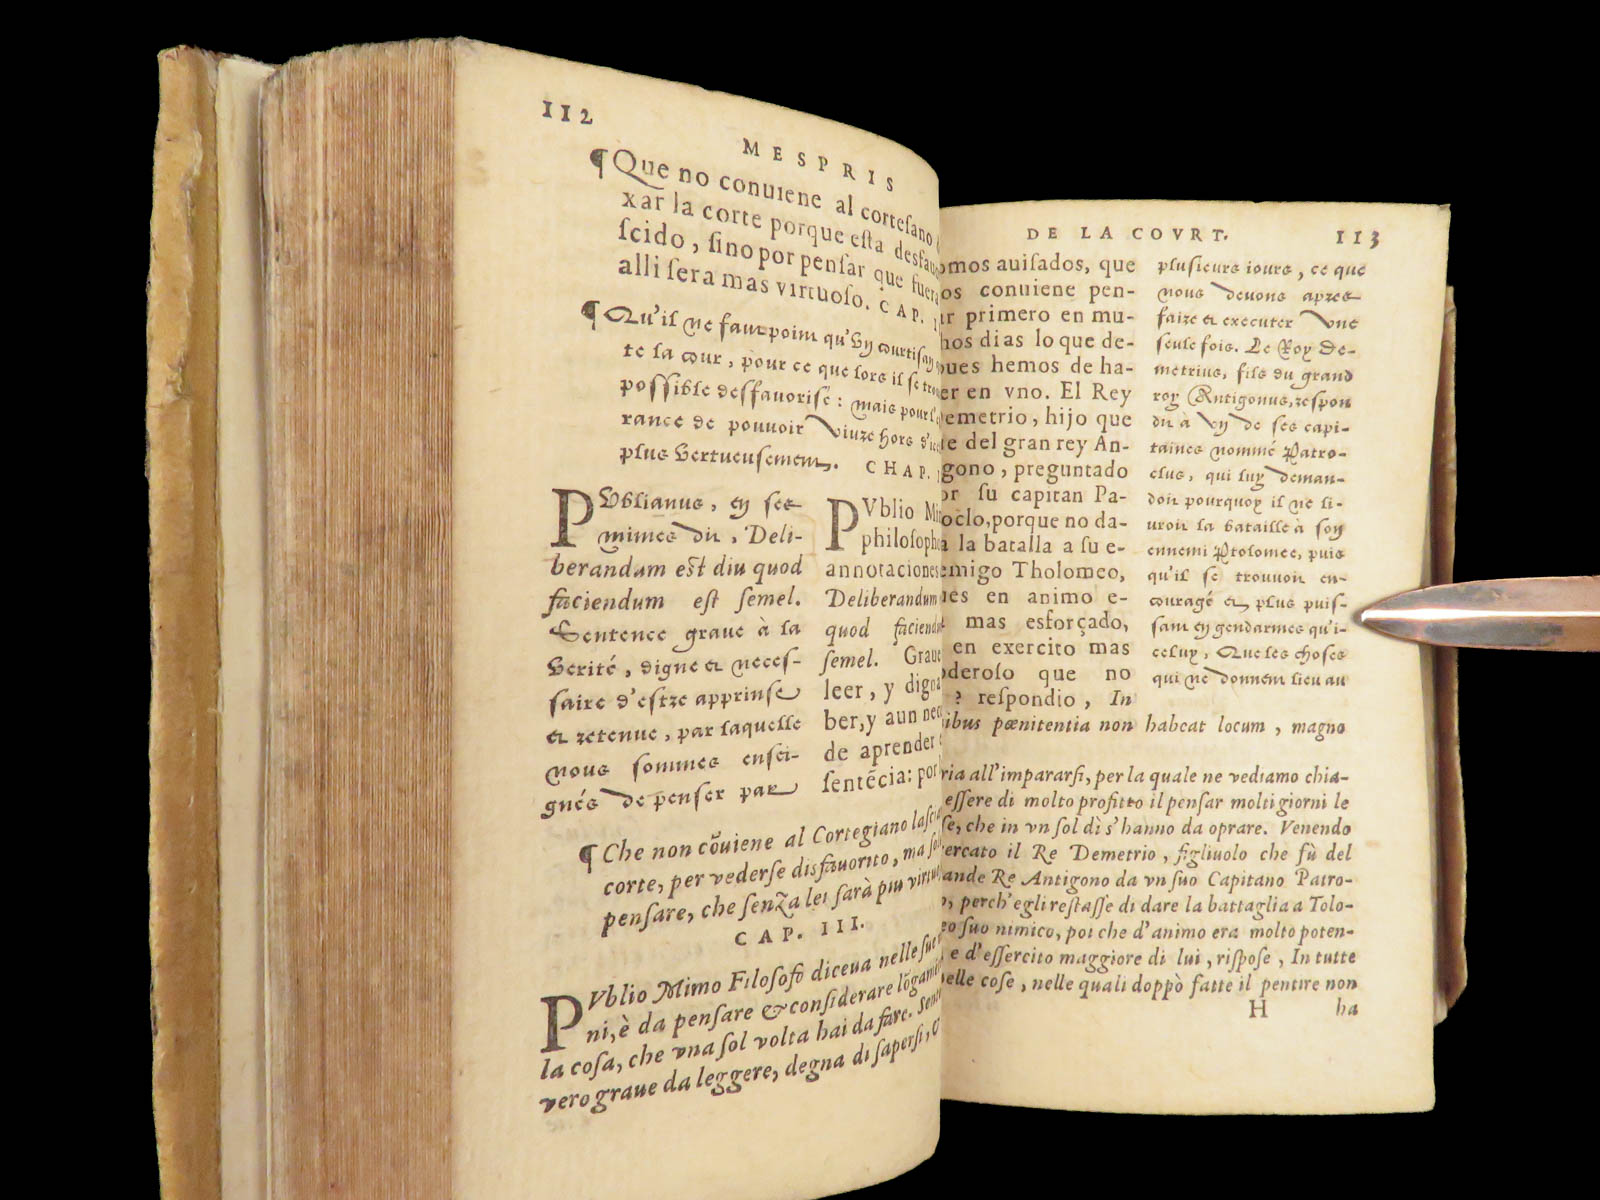 112
MESPRIS
¶Que no conuiene al cortesano
xar la corte porque esta desfauo
scido, sino por pensar que fuera
alli sera mas virtuoso. CAP.
¶Qu'il ne faut point qu'vn courtisan
te la cour, pour ce que lors il se trou
possible desfauorisé: mais pour l'
rance de pouuoir viure hors d'ice
plus vertueusement. CHAP.
PVblianus, en ses
mimes dit, Deli-
berandum est diu quod
faciendum est semel.
Sentence graue à la
verité, digne et neces-
saire d'estre apprinse
et retenue, par laquelle
nous sommes ensei-
gnés de penser par
PVblio Mi
philosopho
annotaciones
Deliberandum
quod faciendū
semel. Graue
leer, y digna
ber, y aun nec
de aprender
sentēcia: por
¶Che non cōuiene al Cortegiano lascia
corte, per vederse disfauorito, ma so
pensare, che senza lei sarà piu virtuo
CAP. III.
PVblio Mimo Filosofo diceua nelle sue
ni, è da pensare & considerare lōgamē
la cosa, che vna sol volta hai da fare. Sente
vero graue da leggere, degna di sapersi,
DE LA COVRT.
113
omos auisados, que
os conuiene pen-
ar primero en mu-
hos dias lo que de-
pues hemos de ha-
er en vno. El Rey
emetrio, hijo que
e del gran rey An-
gono, preguntado
or su capitan Pa-
oclo, porque no da-
a la batalla a su e-
emigo Tholomeo,
ues en animo e-
mas esforçado,
en exercito mas
oderoso que no
? respondio, In
plusieurs iours, ce que
nous deuons apres
faire et executer vne
seule fois. Le Roy De-
metrius, fils du grand
roy Antigonus, respon
dit à vn de ses capi-
taines nommé Patro-
clus, qui luy deman-
doit pourquoy il ne li-
uroit la bataille à son
ennemi Ptolomee, puis
qu'il se trouuoit en-
couragé et plus puis-
sant en gendarmes qu'i-
celuy, Que les choses
qui ne donnent lieu au
ibus pœnitentia non habeat locum, magno
ria all'impararsi, per la quale ne vediamo chia-
essere di molto profitto il pensar molti giorni le
se, che in vn sol dì s'hanno da oprare. Venendo
ercato il Re Demetrio, figliuolo che fù del
ande Re Antigono da vn suo Capitano Patro-
o, perch'egli restasse di dare la battaglia a Tolo-
eo suo nimico, poi che d'animo era molto poten-
e d'essercito maggiore di lui, rispose, In tutte
elle cose, nelle quali doppò fatte il pentire non
H ha